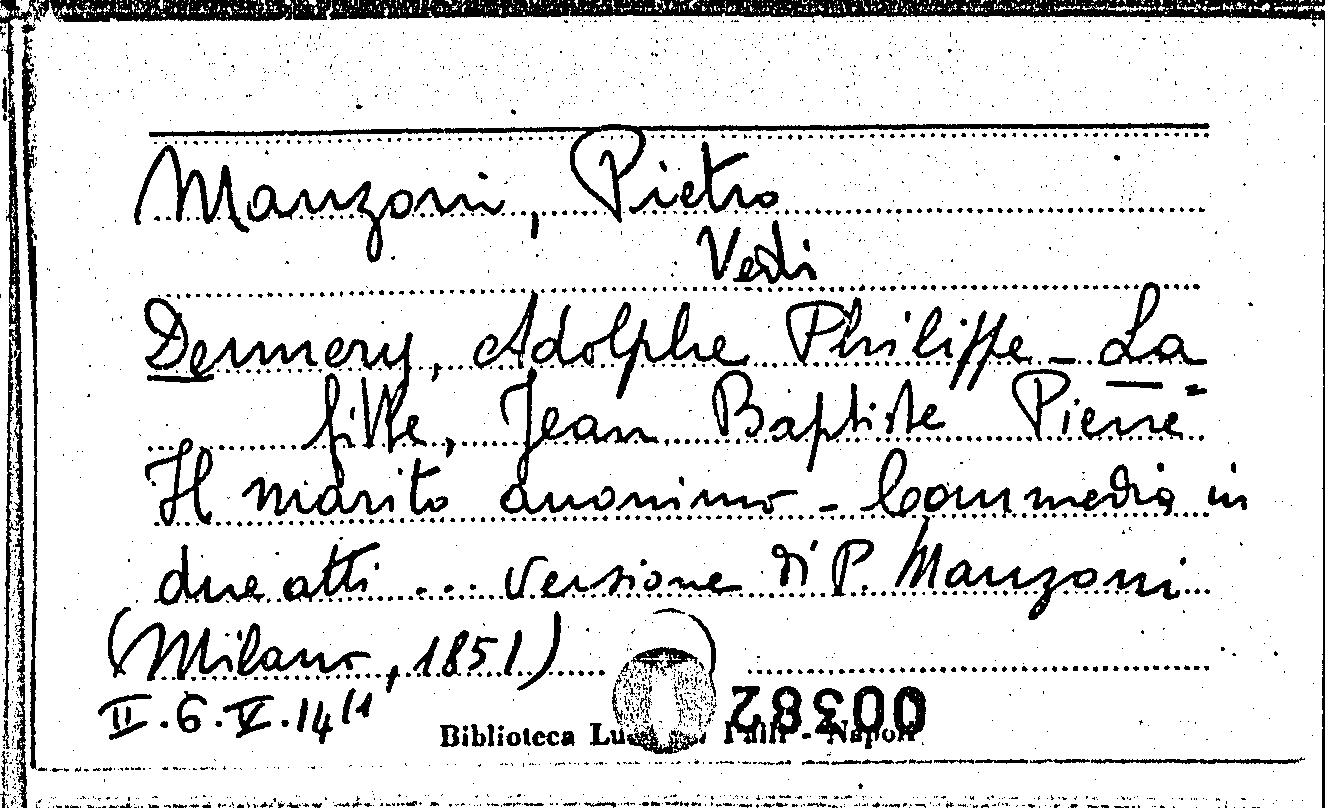 Manzoni, Pietro
Vedi
Dennery, Adolphe Philippe - La=
fitte, Jean Baptiste Pierre
Il marito anonimo - Commedia in
due atti ... versione di P. Manzoni
(Milano, 1851)
II.6.V.14(1
00382
Biblioteca Lu Palli - Napoli